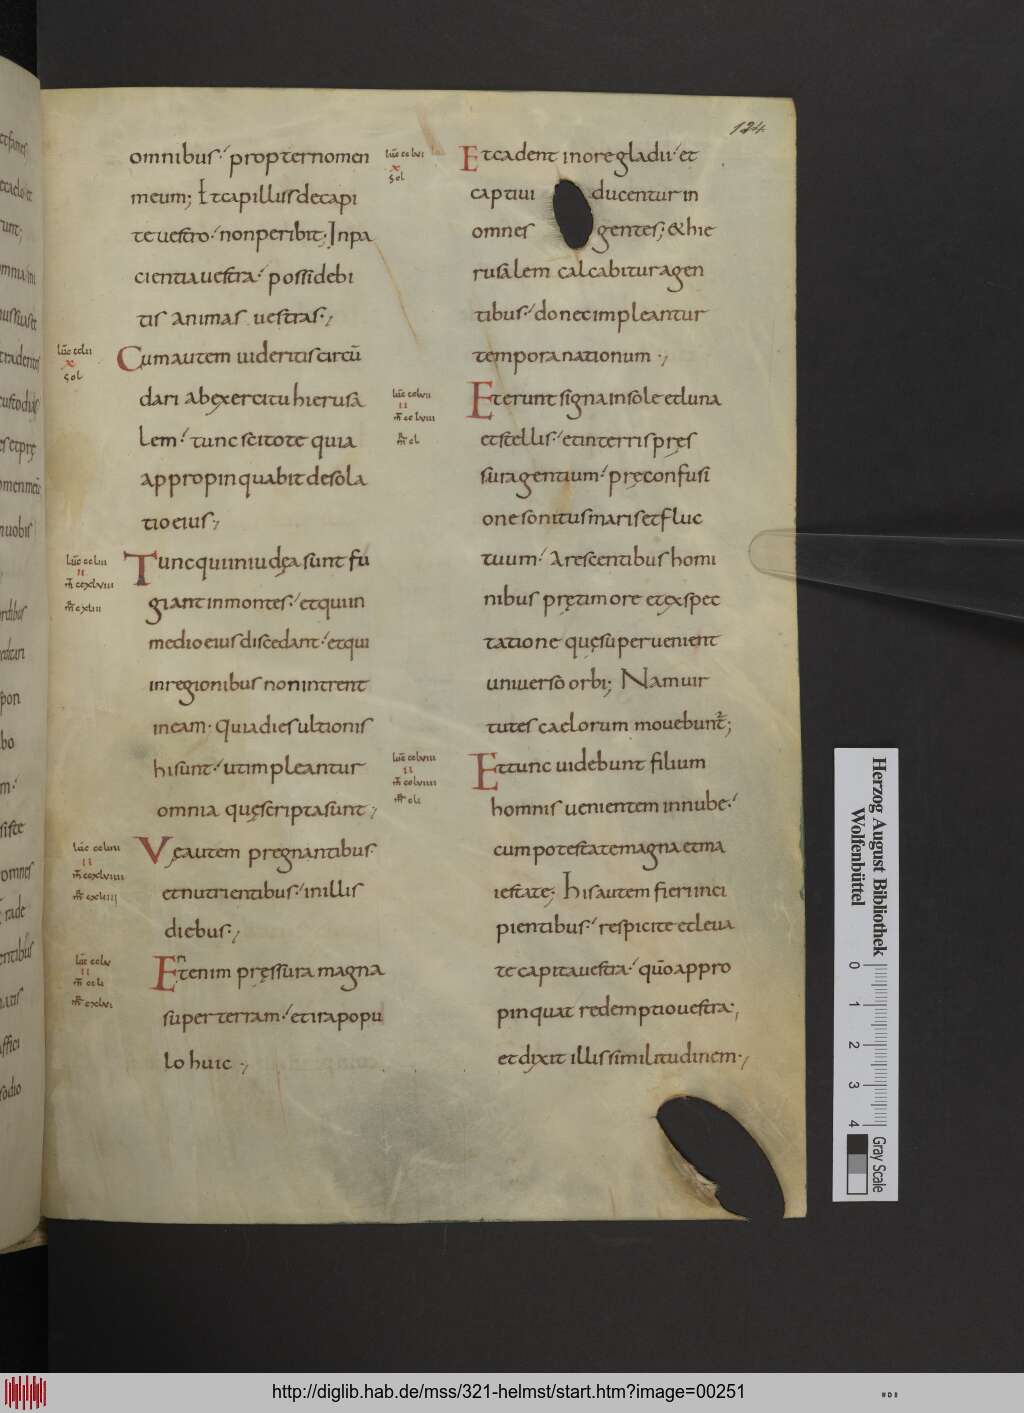 124
omnibus; propter nomen
meum; Et capillus de capi
te vestro; non peribit; In pa
cientia vestra; possidebi
tis animas vestras;
Cum autem uideritis circū
dari ab exercitu hierusa
lem; tunc scitote quia
appropinquabit desola
tio eius;
Tunc qui in iudęa sunt fu
giant in montes; et qui in
medio eius discedant; et qui
in regionibus non intrent
in eam. quia dies ultionis
hi sunt; ut impleantur
omnia quę scripta sunt;
Vę autem pregnantibus
et nutrientibus; in illis
diebus;
Etenim pręssura magna
super terram; et ira popu
lo huic;
Et cadent in ore gladii; et
captiui ducentur in
omnes gentes; & hie
rusalem calcabitur a gen
tibus; donec impleantur
tempora nationum;
Et erunt signa in sole et luna
et stellis; et in terris pręs
sura gentium; pręconfusi
one sonitus maris et fluc
tuum; Arescentibus homi
nibus prę timore et exspec
tatione quę superuenient
uniuerso orbi; Nam uir
tutes caelorum mouebunt;
Et tunc uidebunt filium
hominis uenientem in nube;
cum potestate magna et ma
iestate; his autem fieri inci
pientibus; respicite et leua
te capita uestra; quō appro
pinquat redemptio uestra;
et dixit illis similitudinem;
Herzog August Bibliothek
Wolfenbüttel
0 1 2 3 4
Gray Scale
http://diglib.hab.de/mss/321-helmst/start.htm?image=00251